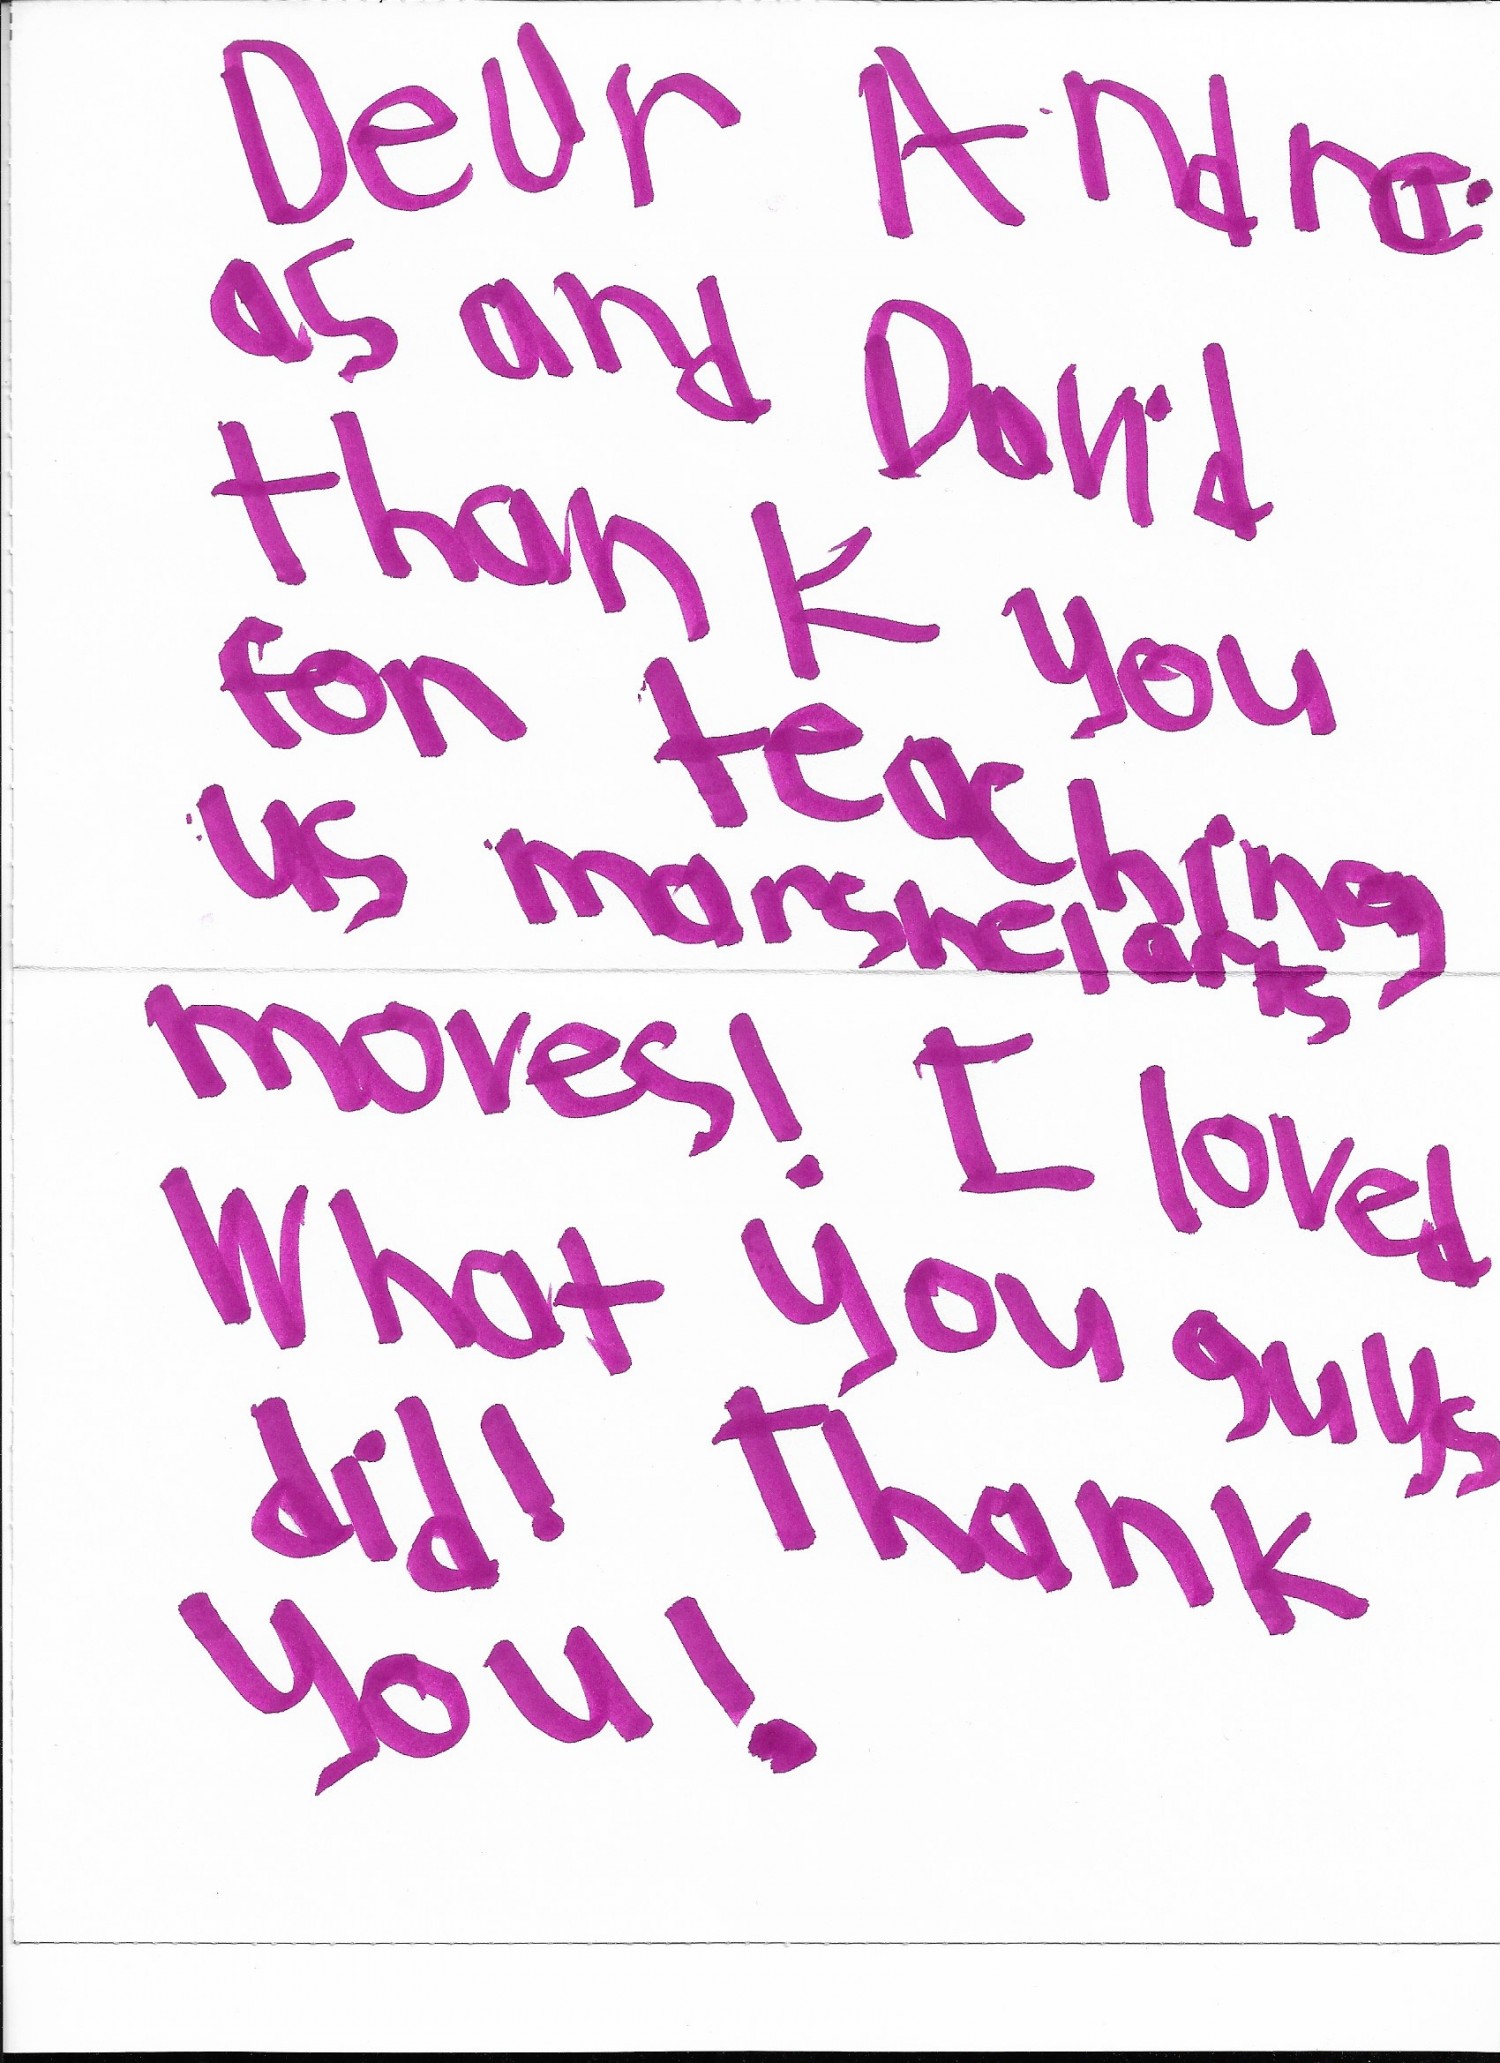 Deur Andre
as and David
thank you
for teaching
us marshelarts
moves! I loved
What you guys
did! Thank
You!